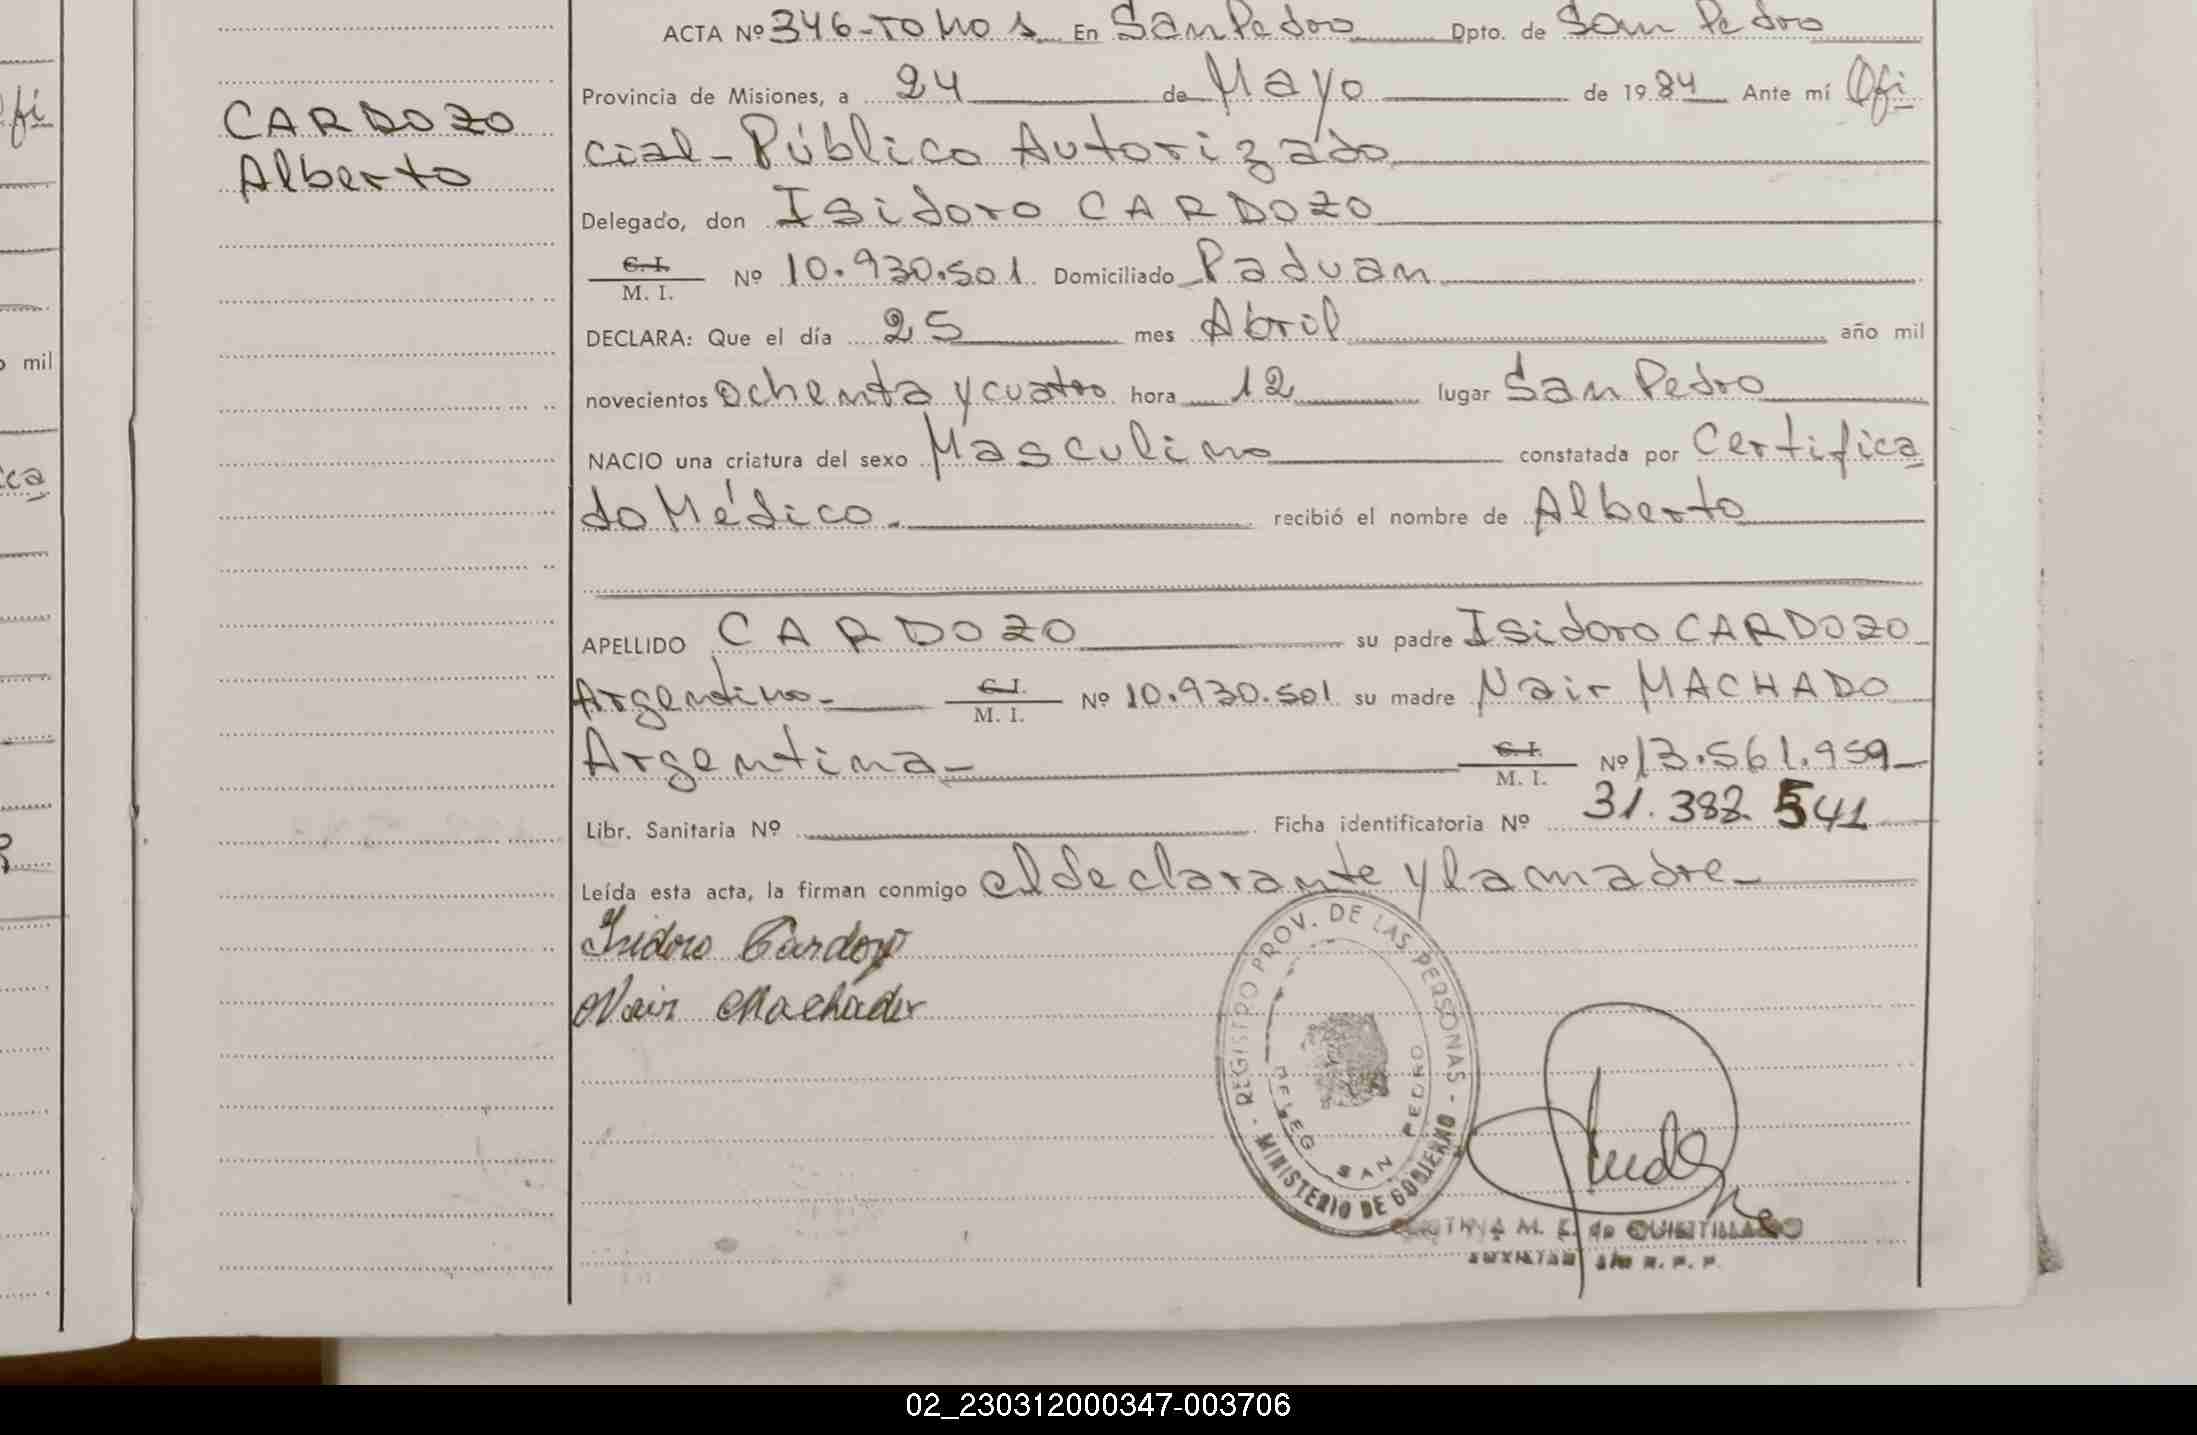 ACTA Nº 346-Tomo 1 En San Pedro Dpto. de San Pedro
Provincia de Misiones, a 24 de Mayo de 1984 Ante mí Ofi
CARDOZO
Alberto
cial-Público Autorizado
Delegado, don Isidoro CARDOZO
C. I.
M. I. Nº 10.930.501 Domiciliado Paduan
DECLARA: Que el día 25 mes Abril año mil
novecientos ochenta y cuatro hora 12 lugar San Pedro
NACIO una criatura del sexo Masculino constatada por Certifica
do Médico. recibió el nombre de Alberto
APELLIDO CARDOZO su padre Isidoro CARDOZO
Argentino- C. I.
M. I. Nº 10.930.501 su madre Nair MACHADO
Argentina- C. I.
M. I. Nº 13.561.959
Libr. Sanitaria Nº Ficha identificatoria Nº 31.388.541
Leída esta acta, la firman conmigo el declarante y la madre-
Isidoro Cardozo
Nair Machado
REGISTRO PROV. DE LAS PERSONAS - MINISTERIO DE GOBIERNO -
DELEG. SAN PEDRO
M. E. de
R. P. P.
fi
o mil
ica
02_230312000347-003706